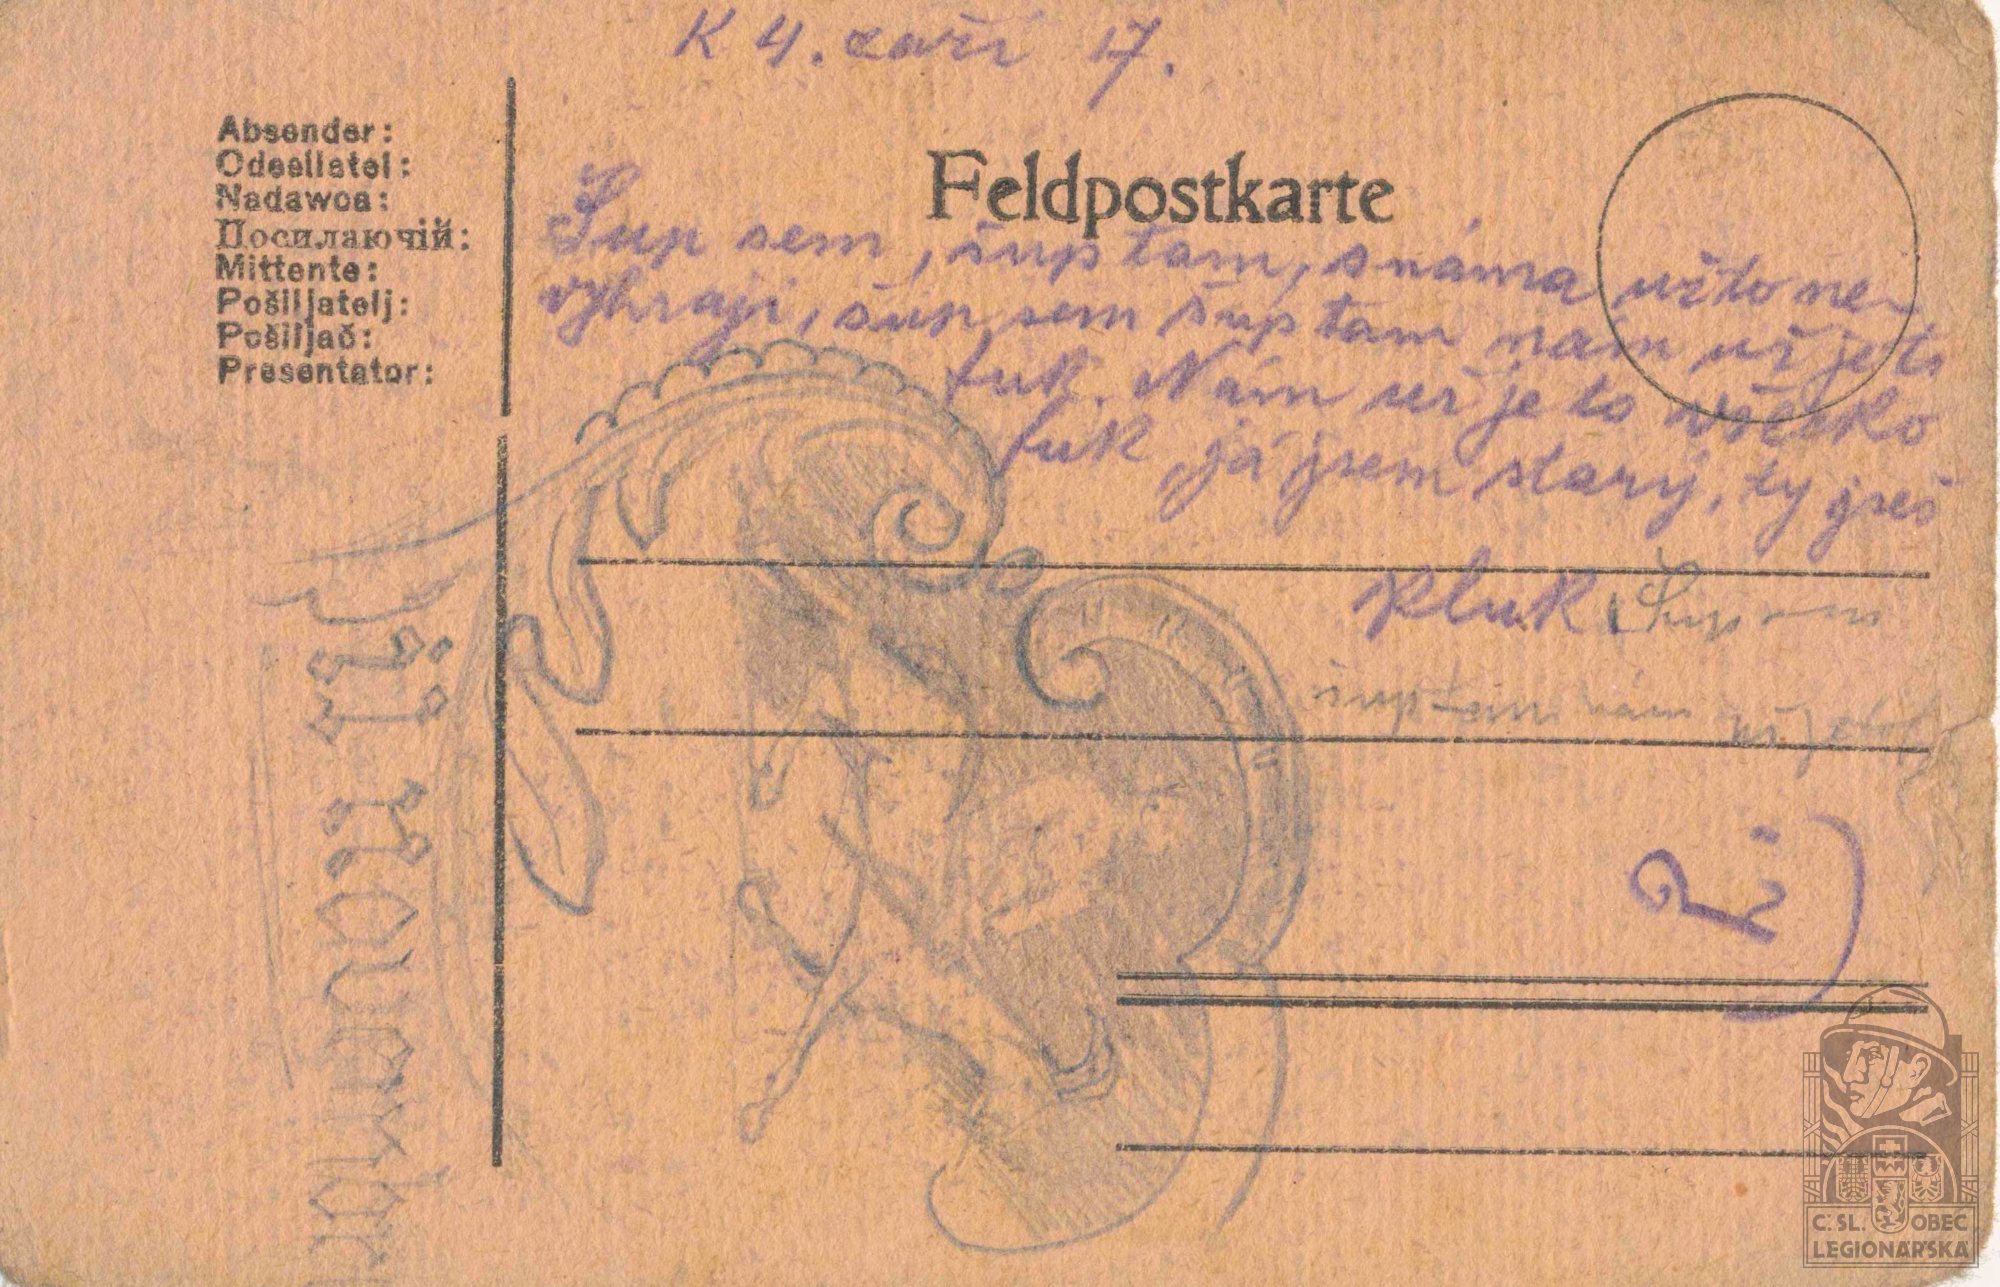 K 4. září 17.
Absender:
Odesílatel:
Nadawca:
Посилаючій:
Mittente:
Pošiljatelj:
Pošiljač:
Presentator:
Feldpostkarte
Šup sem, šup tam, snáma už to ne-
vyhraji, šup sem šup tam nám už je to
fuk. Nám už je to všecko
fuk já jsem starý, ty jseš
kluk. Šup sem
šup tam nám už je to
2.)
Č. SL. OBEC
LEGIONÁŘSKÁ